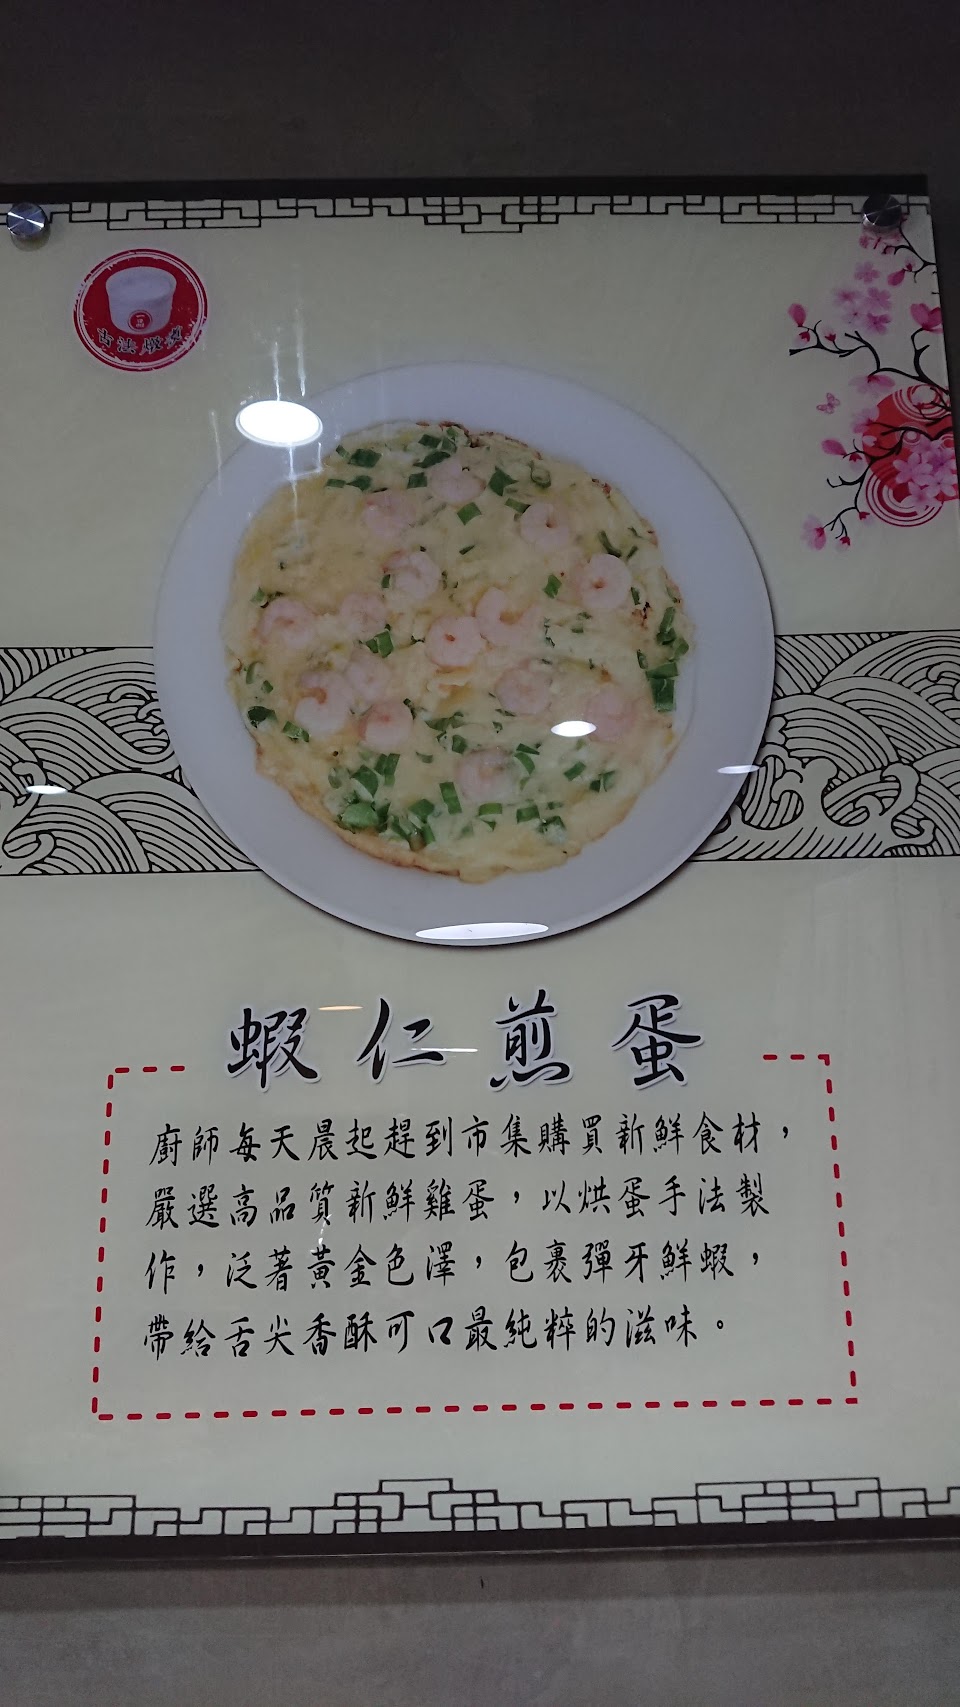 古法燉煲
蝦仁煎蛋
廚師每天晨起趕到市集購買新鮮食材，
嚴選高品質新鮮雞蛋，以烘蛋手法製
作，泛著黃金色澤，包裹彈牙鮮蝦，
帶給舌尖香酥可口最純粹的滋味。